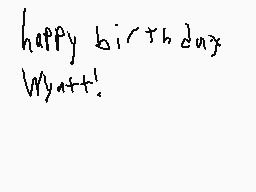 happy birthday
Wyatt!